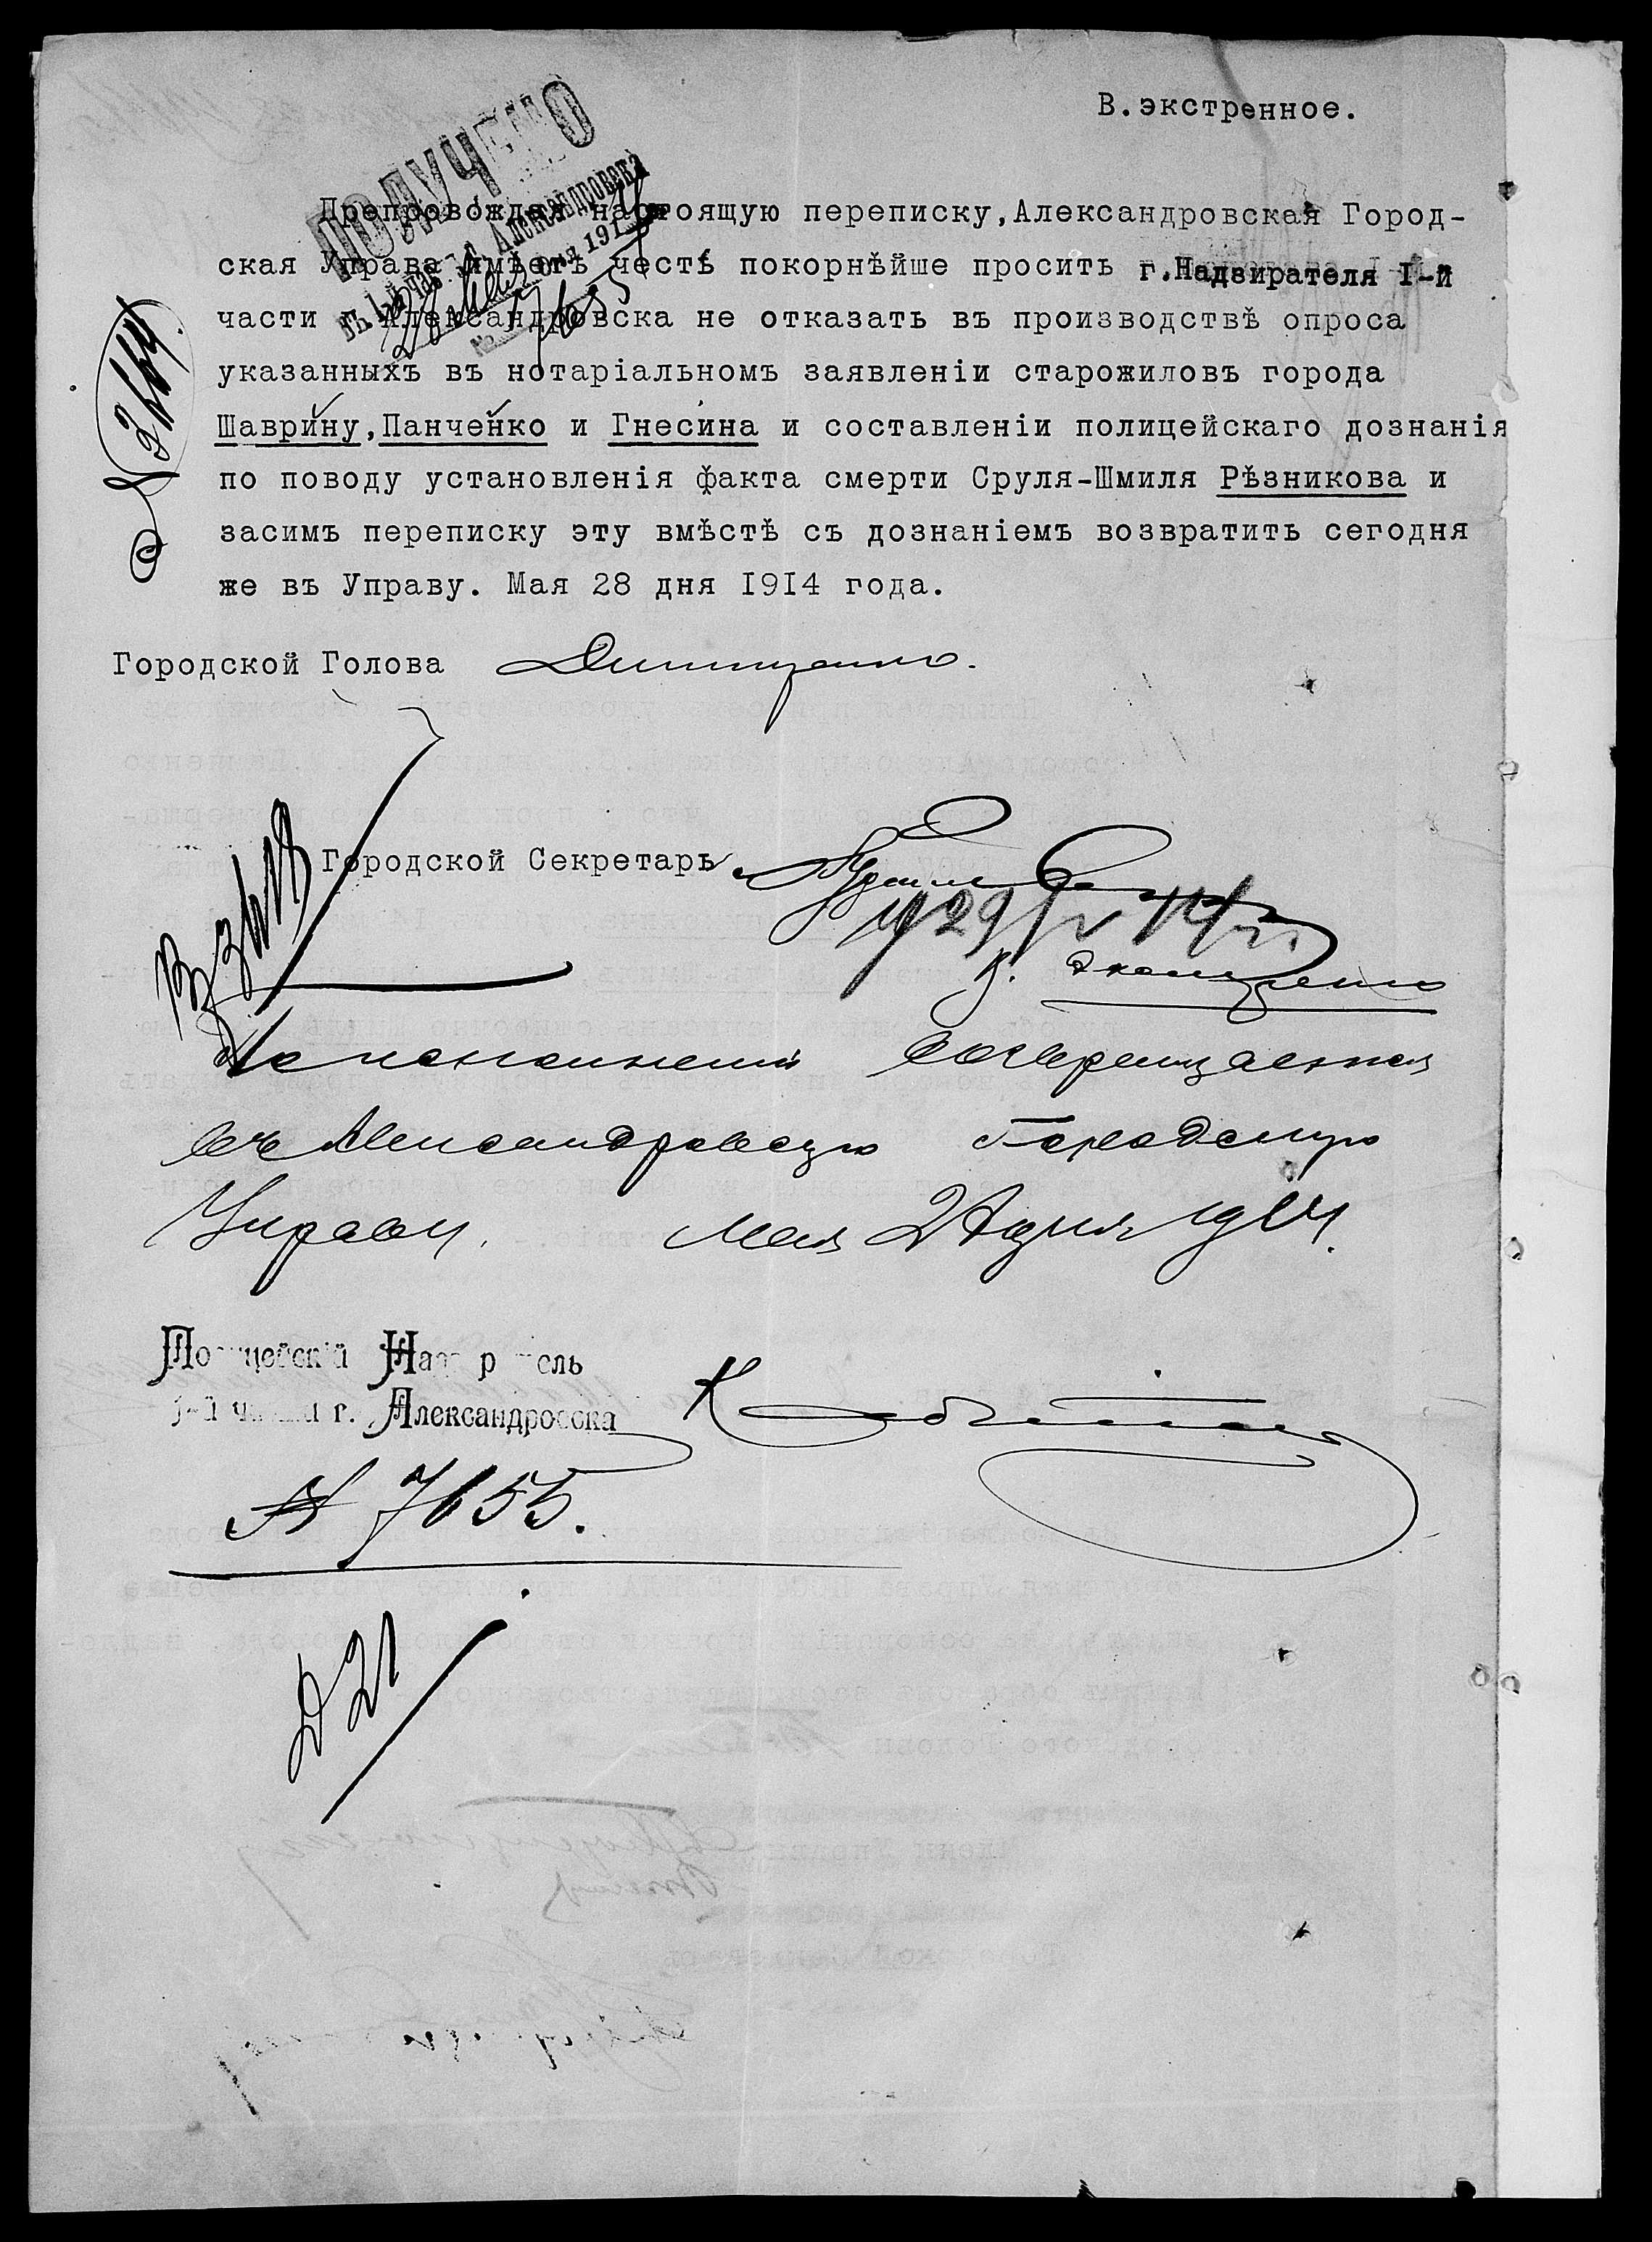 В.экстренное.
ПОЛУЧЕНО
Препровождая настоящую переписку,Александровская Город-
ская Управа имѣетъ честь покорнѣйше просить г.Надзирателя I-й
части г.Александровска не отказать въ производствѣ опроса
указанныхъ въ нотаріальномъ заявленіи старожиловъ города
Шаврину,Панченко и Гнесина и составленіи полицейскаго дознанія
по поводу установленія факта смерти Сруля-Шмиля Рѣзникова и
засимъ переписку эту вмѣстѣ съ дознаніемъ возвратить сегодня
же въ Управу. Мая 28 дня I9I4 года.
Городской Голова
Городской Секретарь
По исполненіи возвращается
въ Александровскую Городскую
Управу. Мая дня 1914.
Полицейскій Надзиратель
1-й части г. Александровска
№ 7655.